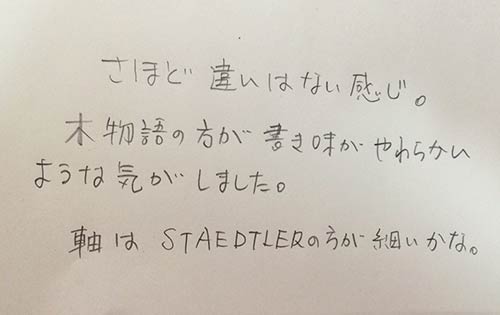 さほど違いはない感じ。
木物語の方が書き味がやわらかい
ような気がしました。
軸はSTAEDTLERの方が細いかな。